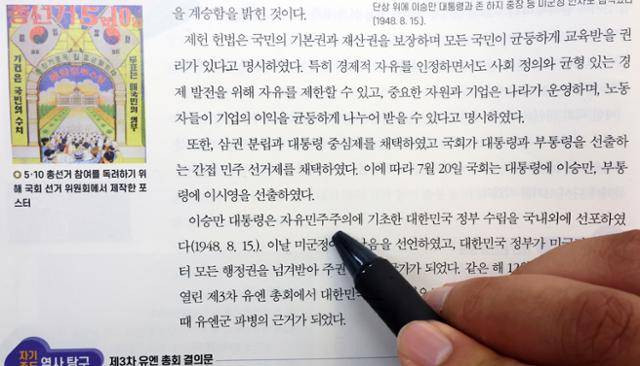 을 계승함을 밝힌 것이다.
단상 위에 이승만 대통령과
(1948. 8. 15.).
제헌 헌법은 국민의 기본권과 재산권을 보장하며 모든 국민이 균등하게 교육받을 권
리가 있다고 명시하였다. 특히 경제적 자유를 인정하면서도 사회 정의와 균형 있는 경
제 발전을 위해 자유를 제한할 수 있고, 중요한 자원과 기업은 나라가 운영하며, 노동
자들이 기업의 이익을 균등하게 나누어 받을 수 있다고 명시하였다.
또한, 삼권 분립과 대통령 중심제를 채택하였고 국회가 대통령과 부통령을 선출하
는 간접 민주 선거제를 채택하였다. 이에 따라 7월 20일 국회는 대통령에 이승만, 부통
령에 이시영을 선출하였다.
이승만 대통령은 자유민주주의에 기초한 대한민국 정부 수립을 국내외에 선포하였
다(1948. 8. 15.). 이날 미군정 음을 선언하였고, 대한민국 정부가
터 모든 행정권을 넘겨받아 주권 국가가 되었다. 같은 해 12
열린 제3차 유엔 총회에서 대한민
때 유엔군 파병의 근거가 되었다.
총선거 5월 10일
기권은 국민의 수치
투표는 애국민의 의무
5·10 총선거 참여를 독려하기 위
해 국회 선거 위원회에서 제작한 포
스터
자기
주도 역사 탐구
제3차 유엔 총회 결의문